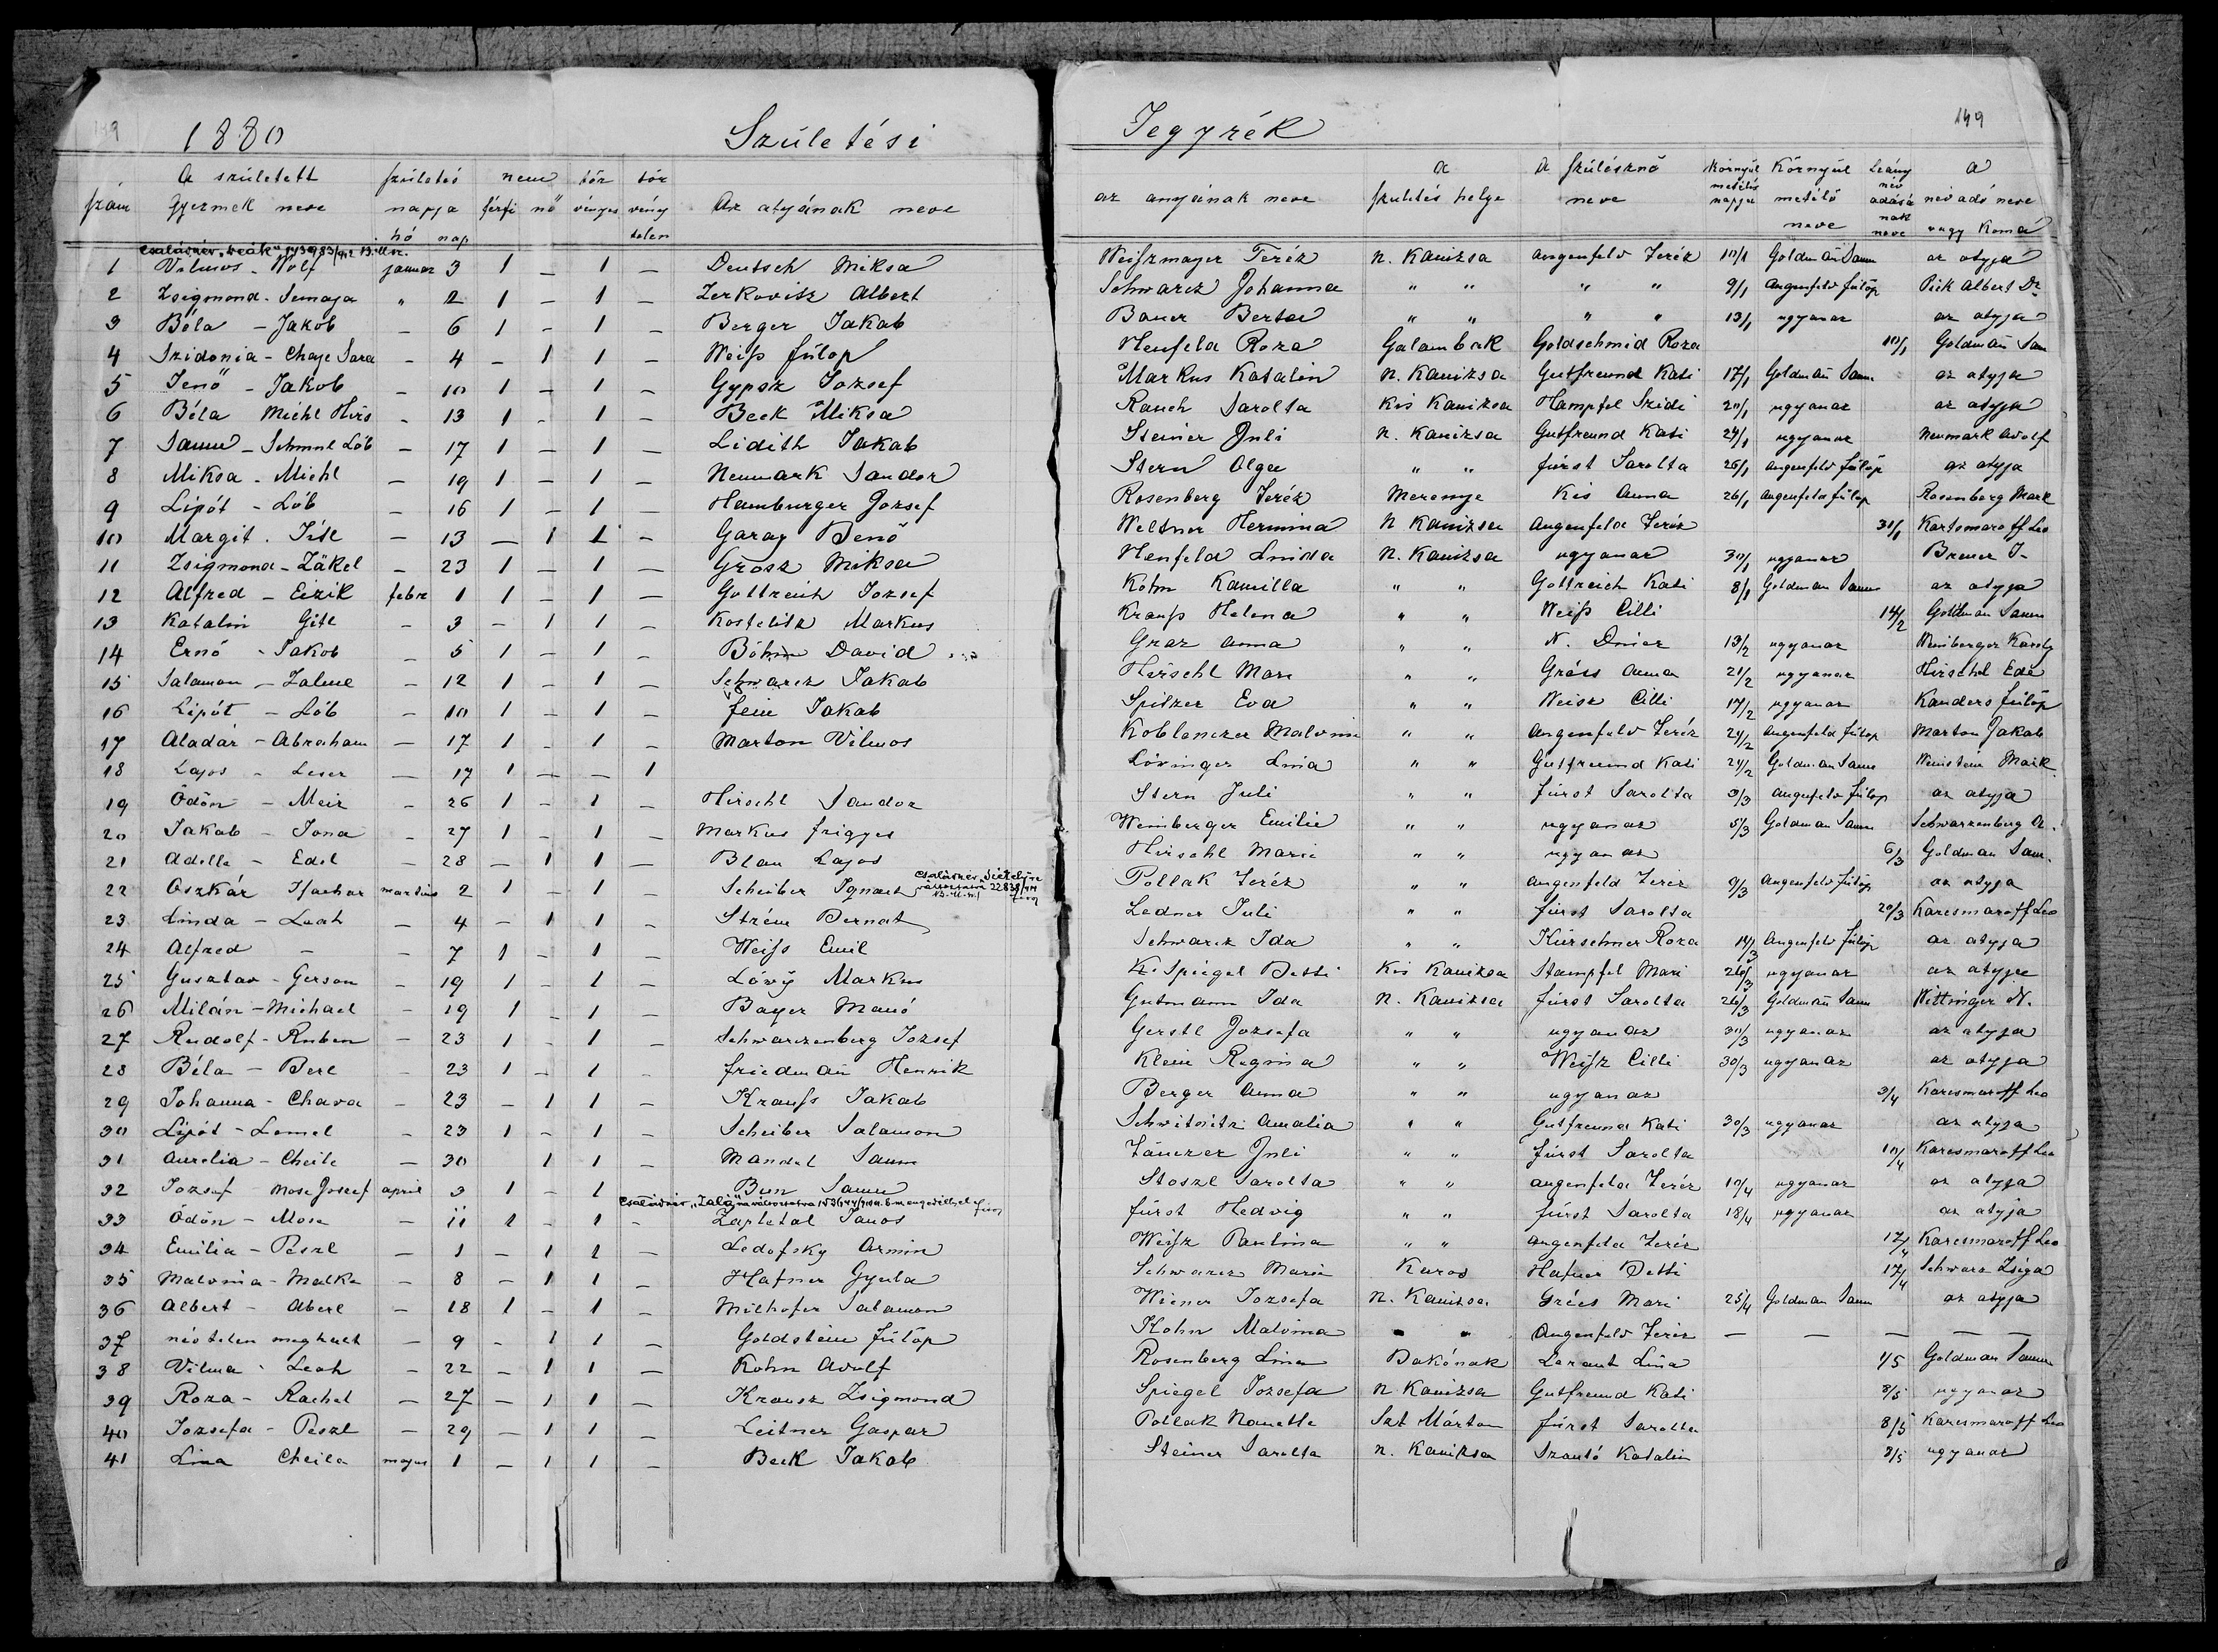 149
1880 Születési
szám A született Gyermek neve születés napja hó nap nem férfi nő törvényes törvénytelen Az atyának neve
1 Vilmos - Wolf januar 3 1 — 1 — Deutsch Miksa
2 Zsigmond - Semaja " 2 1 — 1 — Zerkovitz Albert
3 Béla - Jakob — 6 1 — 1 — Berger Jakab
4 Szidonia - Chaje Sara — 4 — 1 1 — Weiss fülop
5 Jenő - Jakob — 10 1 — 1 — Gypsz Jozsef
6 Béla Michl Hirs — 13 1 — 1 — Beck Miksa
7 Samu - Schmul Löb — 17 1 — 1 — Lidith Jakab
8 Miksa - Michl — 19 1 — 1 — Neumark Sandor
9 Lipót - Löb — 16 1 — 1 — Hamburger Jozsef
10 Margit - — 13 — 1 1 — Garay Benő
11 Zsigmond - Zäkel — 23 1 — 1 — Grosz Miksa
12 Alfred - Eizik febr 1 1 — 1 — Gottreich Jozsef
13 Katalin Gitl — 3 — 1 1 — Kostelitz Markus
14 Ernő - Jakob — 5 1 — 1 — Böhm David
15 Salamon - Zalme — 12 1 — 1 — Schwarcz Jakab
16 Lipót - Löb — 10 1 — 1 — fein Jakab
17 Aladár - Abraham — 17 1 — 1 — Marton Vilmos
18 Lajos - Leser — 17 1 — — 1
19 Ödön - Meir — 26 1 — 1 — Hirschl Sandor
20 Jakab - Jona — 27 1 — 1 — Markus frigyes
21 Adella - Edel — 28 — 1 1 — Blau Lajos
22 Oszkár Isachar martius 2 1 — 1 — Scheiber Ignatz
23 Linda - Leah — 4 — 1 1 — Strém Bernat
24 Alfred — — 7 1 — 1 — Weiss Emil
25 Gusztav - Gerson — 19 1 — 1 — Lövy Markus
26 Milán - Michael — 19 1 — 1 — Bayer Manó
27 Rudolf - Ruben — 23 1 — 1 — Schwarzenberg Jozsef
28 Béla - Berl — 23 1 — 1 — friedman Henrik
29 Johanna - Chava — 23 — 1 1 — Krauss Jakab
30 Lipót - Lemel — 23 1 — 1 — Scheiber Salamon
31 Aurelia - Cheile — 30 1 1 — Mandel Samu
32 Jozsef - Mose Josef april 3 1 — 1 Bun Samu
33 Ödön - Mose — 11 1 — 1 — Zapletal Janos
34 Emilia - Peszl — 1 — 1 1 — Ledofsky Armin
35 Malvina - Malka — 8 — 1 1 — Hafner Gyula
36 Albert - Aberl — 18 1 — 1 — Milhofer Salamon
37 név telen meghalt — 9 — 1 1 Goldstein fülöp
38 Vilma - Leah — 22 — 1 1 — Kohn Adolf
39 Roza - Rachel — 27 — 1 1 — Krausz Zsigmond
40 Jozsefa - Peszl — 29 — 1 1 — Leitner Gaspar
41 Lina Cheila majus 1 — 1 1 — Beck Jakab
Jegyzék 149
az anyának neve a születés helye a szülésznő neve Környül metélés napja Környül metélő neve Leány név adásának neve a név adó neve vagy Komá
Weiszmayer Teréz N. Kanizsa Angenfeld Teréz 10/1 Goldman Samu az atyja
Schwarcz Johanna " " " " 9/1 Angenfeld fülöp Pick Albert Dr
Bauer Berta " " " " 13/1 ugyanaz az atyja
Neufeld Roza Galambok Goldschmid Roza 10/1 Goldman Sam
Markus Katalin N. Kanizsa Gutfreund Kati 17/1 Goldman Samu az atyja
Rauch Sarolta Kis Kanizsa Hampfel Szidi 20/1 ugyanaz az atyja
Steiner Juli N. Kanizsa Gutfreund Kati 24/1 ugyanaz Neumark Adolf
Stern Olga " " fürst Sarolta 26/1 Angenfeld fülöp az atyja
Rosenberg Teréz Merenye Kis Anna 26/1 Angenfeld fülöp Rosenberg Mark
Weltner Hermina N Kanizsa Angenfeld Teréz 31/1 Kartsmaroff Leo
Neufeld Linida N. Kanizsa ugyanaz 30/1 ugyanaz Breuer J.
Kohn Kamilla " " Gottreich Kati 8/1 Goldman Samu az atyja
Krauss Helena " " Weiss Cilli 14/2 Goldman Samu
Graz Anna " " N. 13/2 ugyanaz Weinberger Karoly
Hirschl Mari " " Gráes Anna 21/2 ugyanaz Hirschl Ede
Spitzer Eva " " Weisz Cilli 17/2 ugyanaz Kanders fülöp
Koblenczer Malvina " " Angenfeld Teréz 24/2 Angenfeld fülöp Marton Jakab
Lövinger Lina " " Gutfreund Kati 24/2 Goldman Samu Weinstein Mark
Stern Juli " " fürst Sarolta 3/3 Angenfeld fülöp az atyja
Weinberger Emilie " " ugyanaz 5/3 Goldman Samu Schwarzenberg A.
Hirschl Marie " " ugyanaz 6/3 Goldman Sam.
Pollak Teréz " " Angenfeld Teréz 9/3 Angenfeld fülöp az atyja
Ledner Juli " " fürst Sarolta 20/3 Karcsmaroff Leo
Schwarcz Ida " " Kürschner Roza 14/3 Angenfeld fülöp az atyja
K. Spiegel Betti Kis Kanizsa Stampfel Mari 26/3 ugyanaz az atyja
Gutmann Ida N. Kanizsa fürst Sarolta 26/3 Goldman Samu Wittinger N.
Gerstl Jozsefa " " ugyanaz 30/3 ugyanaz az atyja
Klein Regina " " Weisz Cilli 30/3 ugyanaz az atyja
Berger Anna " " ugyanaz 3/4 Karcsmaroff Leo
Schwitzitz Amalia " " Gutfreund Kati 30/3 ugyanaz az atyja
Tänczer Juli " " fürst Sarolta 10/4 Karcsmaroff Leo
Stoszl Sarolta " " Angenfeld Teréz 10/4 ugyanaz az atyja
fürst Hedvig " " fürst Sarolta 18/4 ugyanaz az atyja
Weisz Paulina " " Angenfeld Teréz 12/4 Karcsmaroff Leo
Schwarcz Maria Karos Hafner Betti 17/4 Schwarz Zsiga
Wiener Jozsefa N. Kanizsa Gráes Mari 25/4 Goldman Samu az atyja
Kohn Malvina " " Angenfeld Teréz — — — — —
Rosenberg Lina Bakónak Lina 1/5 Goldman Samu
Spiegel Jozsefa N Kanizsa Gutfreund Kati 8/5 ugyanaz
Pollak Nanette Szt Márton fürst Sarolta 8/5 Karcsmaroff Leo
Steiner Sarolta N. Kanizsa Szantó Katalin 8/5 ugyanaz